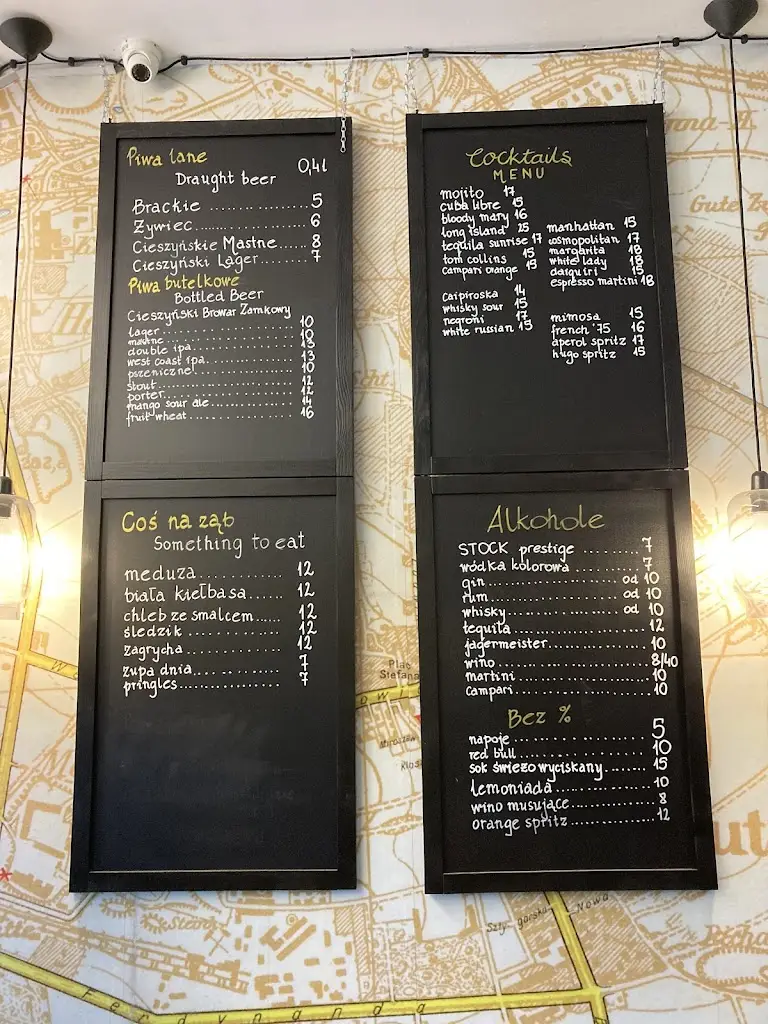 Piwa lane
Draught beer 0,4l
Brackie ..................... 5
Żywiec ..................... 6
Cieszyńskie Mastne ...... 8
Cieszyński Lager .......... 7
Piwa butelkowe
Bottled Beer
Cieszyński Browar Zamkowy
lager ..................... 10
10
double ipa ..................... 13
west coast ipa ..................... 13
pszeniczne ..................... 10
stout ..................... 12
porter ..................... 12
mango sour ale ........... 14
fruit wheat ............... 16
Cocktails
MENU
mojito 17
cuba libre 15
bloody mary 16
long island 25
tequila sunrise 17
tom collins 15
campari orange 15
caipiroska 14
whisky sour 15
negroni 17
white russian 15
manhattan 15
cosmopolitan 17
margarita 18
white lady 18
daiquiri 15
espresso martini 18
mimosa 15
french '75 16
aperol spritz 17
hugo spritz 15
Coś na ząb
Something to eat
meduza ............ 12
biała kiełbasa ...... 12
chleb ze smalcem ...... 12
śledzik ............... 12
zagrycha ............ 12
zupa dnia ............ 7
pringles ............... 7
Alkohole
STOCK prestige ......... 7
wódka kolorowa ......... 7
gin ..................... od 10
rum ..................... od 10
whisky ..................... od 10
tequila ..................... 12
jägermeister ............... 10
wino ..................... 8/40
martini ..................... 10
campari ..................... 10
Bez %
napoje ..................... 5
red bull ..................... 10
sok świeżo wyciskany ....... 15
lemoniada ............... 10
wino musujące ............ 8
orange spritz ............ 12
Gute
Plac
Stefana
Szty gorska Nowa
Ferdynanda